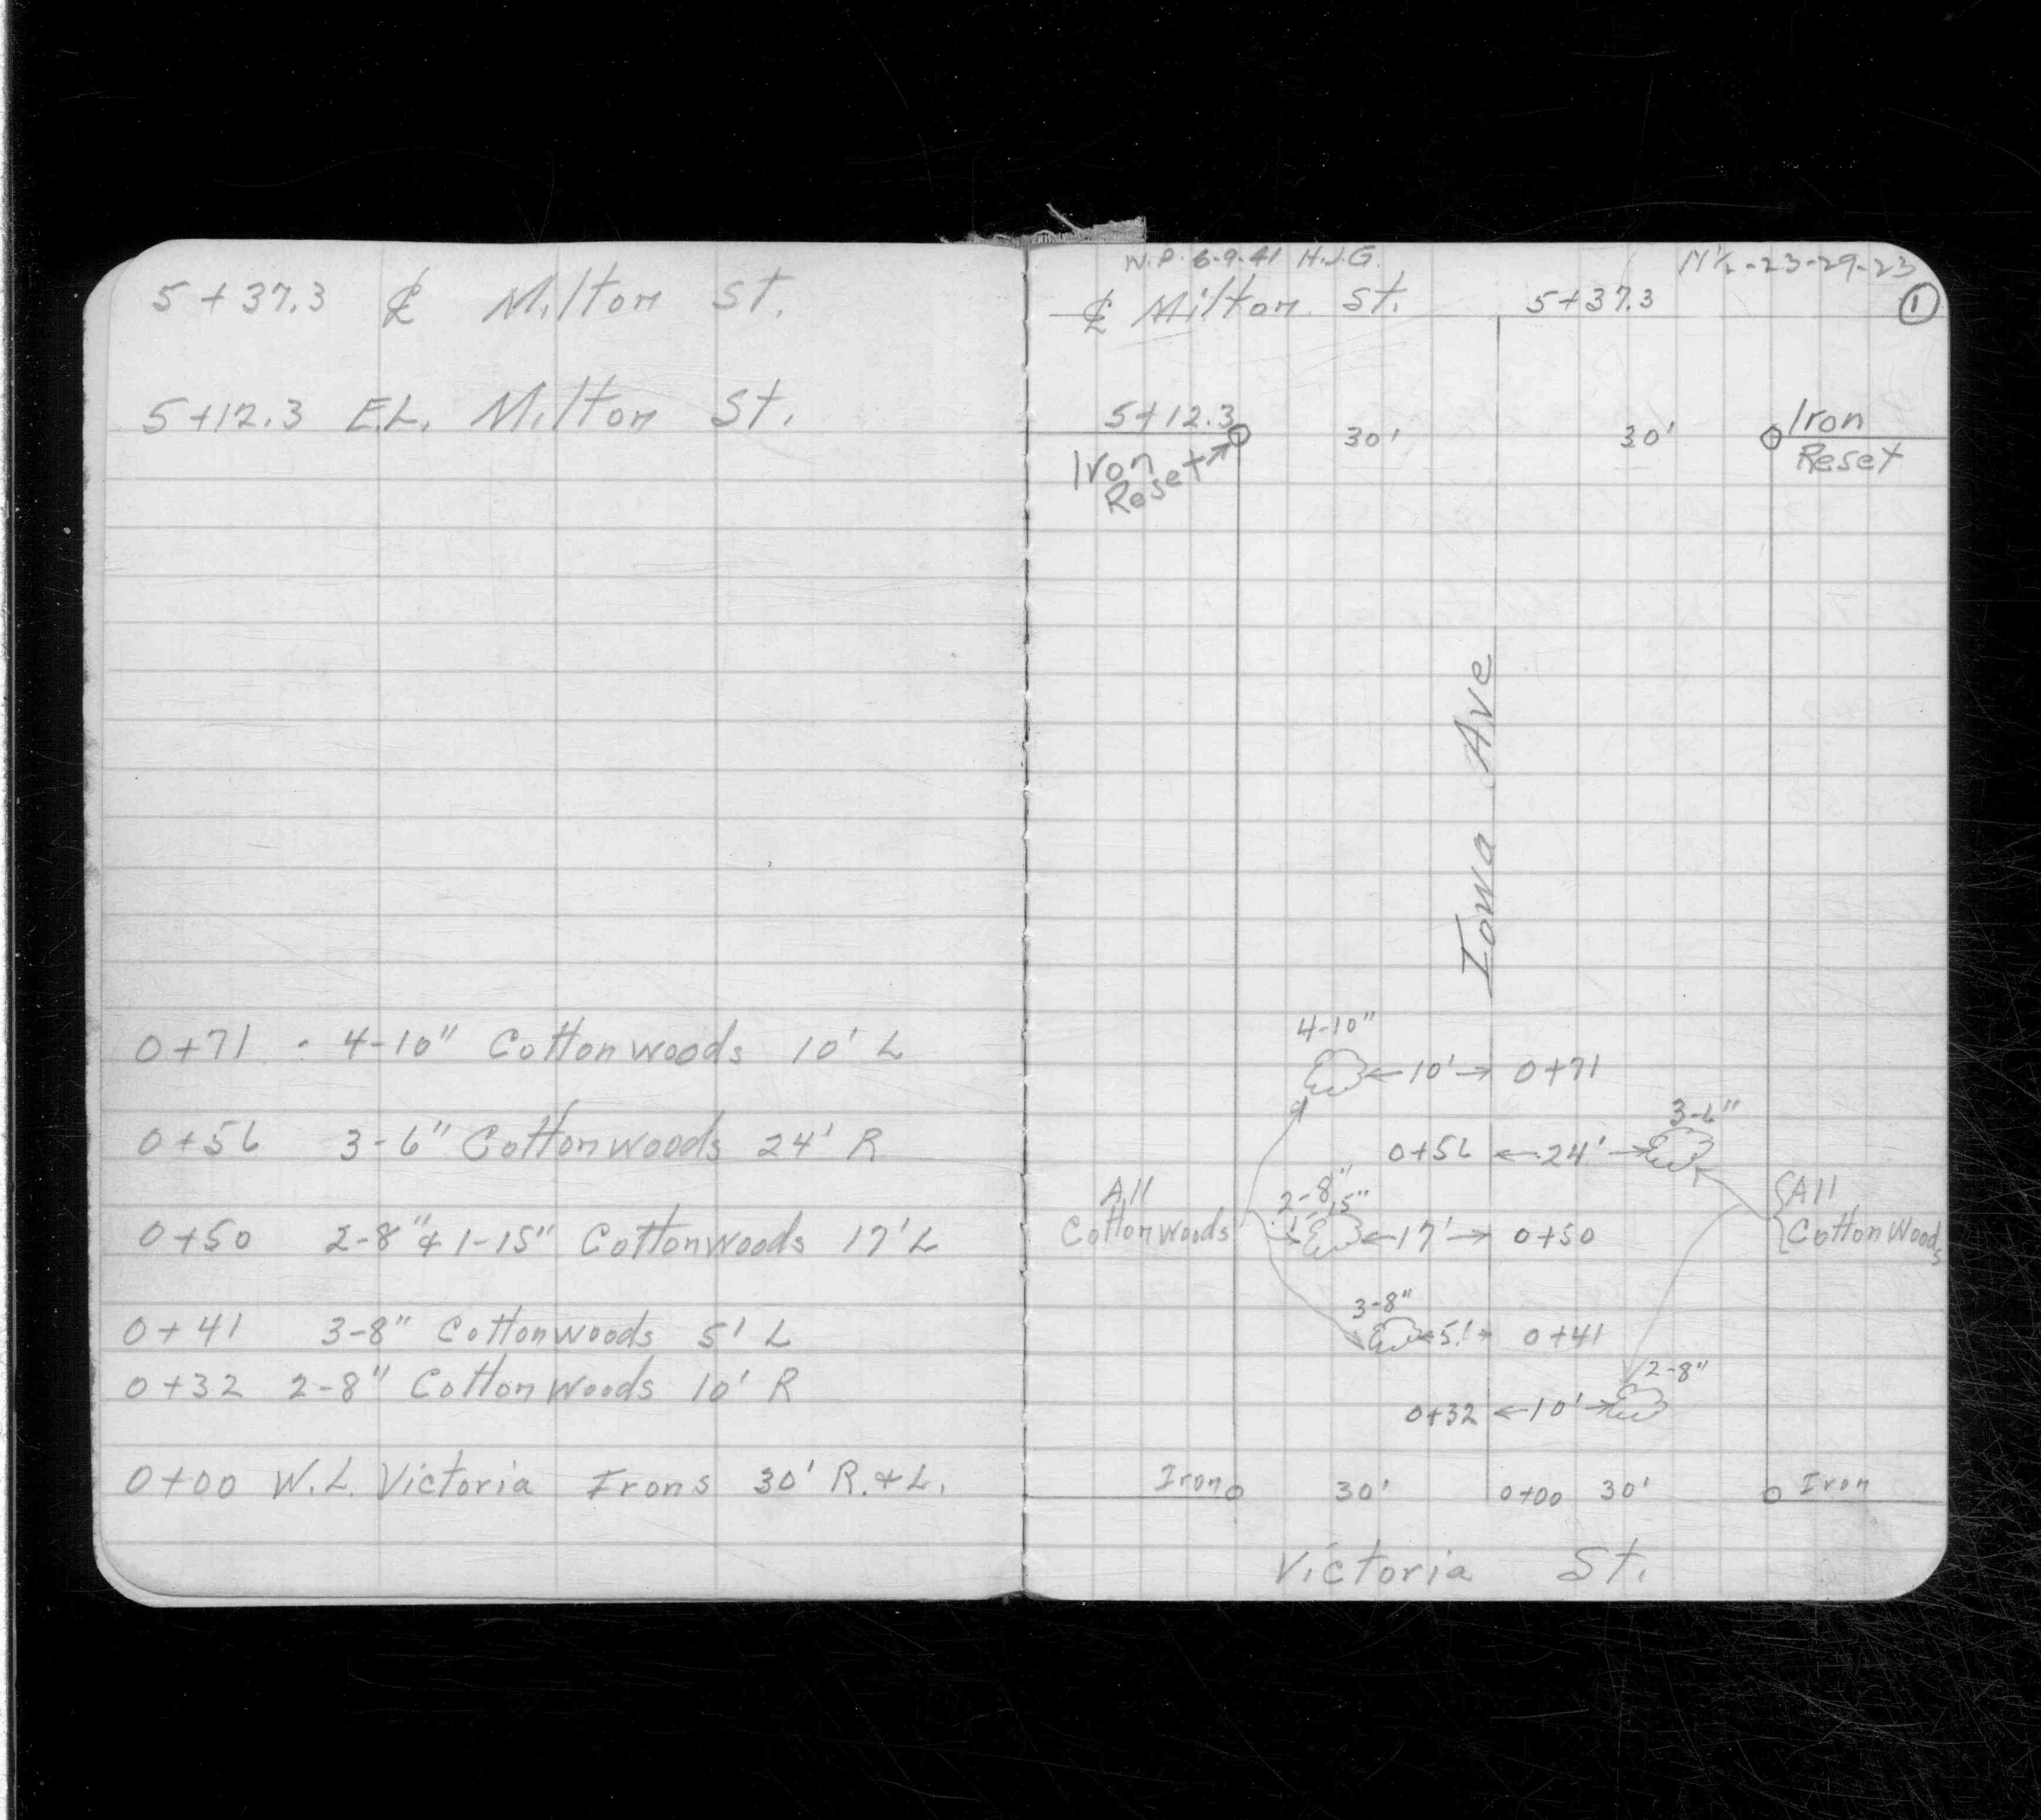 5+37.3 ℄ Milton St.
5+12.3 E.L. Milton St.
0+71 · 4-10" Cottonwoods 10' L
0+56 3-6" Cottonwoods 24' R
0+50 2-8" & 1-15" Cottonwoods 17' L
0+41 3-8" Cottonwoods 5' L
0+32 2-8" Cottonwoods 10' R
0+00 W.L. Victoria Irons 30' R. & L.
W.P. 6-9-41 H.J.G. N½-23-29-23
℄ Milton St. 5+37.3 1
5+12.3 30' 30' Iron
Iron Reset Reset
Iowa Ave
4-10"
10' 0+71
3-6"
0+56 24'
All 2-8" All
1-15"
Cottonwoods 17' 0+50 Cottonwoods
3-8"
5' 0+41
2-8"
0+32 10'
Iron 30' 0+00 30' Iron
Victoria St.